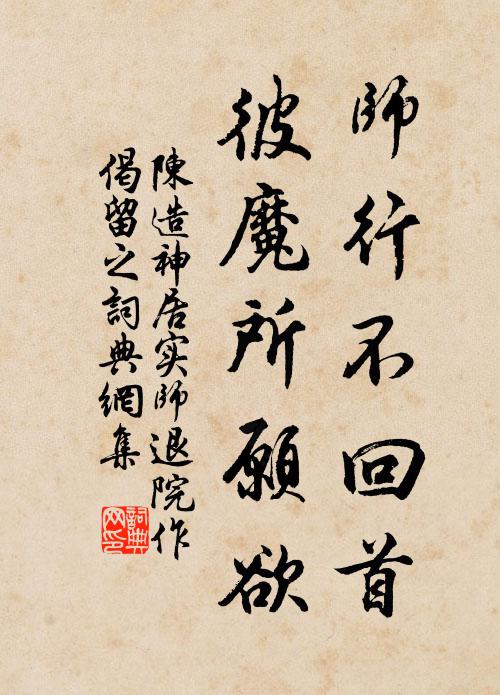 師行不回首
彼魔所願欲
陳造神居实師退院作
偈留之詞典網集
詞典
网印